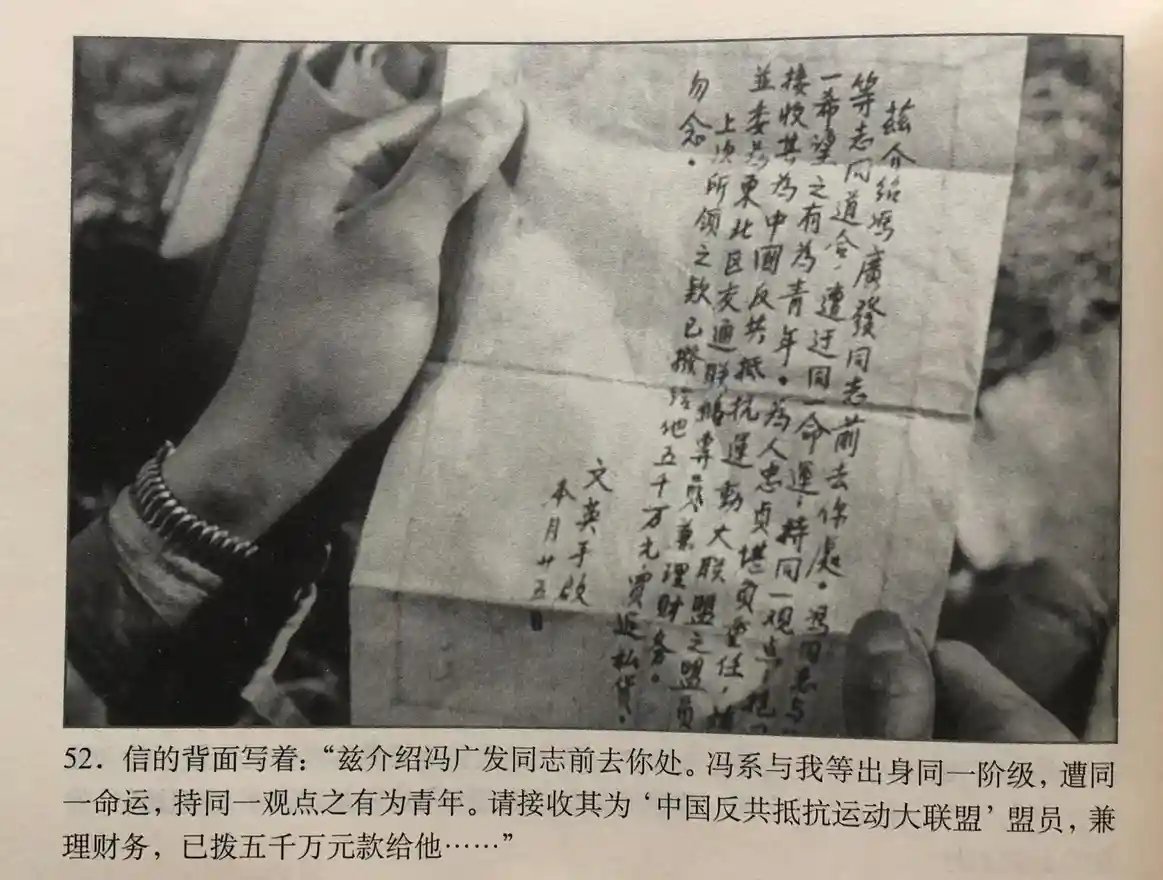 茲介绍馮廣發同志前去你處。馮同志与
等志同道合，遭迂同一命運，持同一观点，抱
一希望之有為青年。為人忠貞堪負重任，
接收其為中國反共抵抗運動大联盟之盟員
並委為東北区交通联絡專員兼理財务。
上次所领之款已撥给他五千万元買返私货。
勿念。
文英手啟
本月廿五日
52．信的背面写着：“兹介绍冯广发同志前去你处。冯系与我等出身同一阶级，遭同
一命运，持同一观点之有为青年。请接收其为‘中国反共抵抗运动大联盟’盟员，兼
理财务，已拨五千万元款给他……”